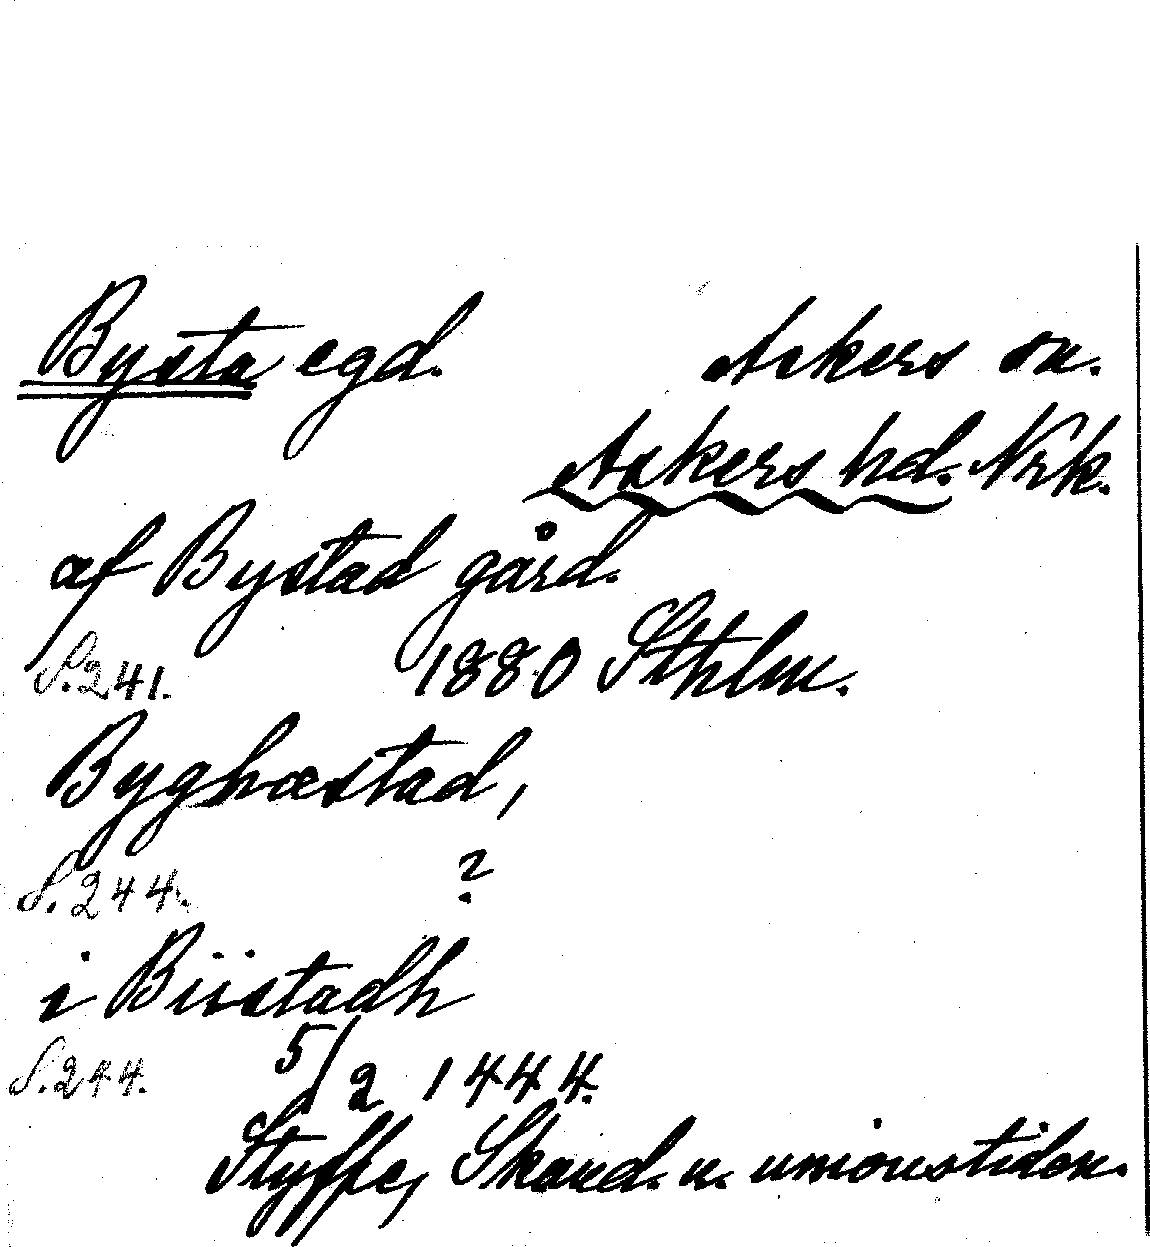 Bysta egd. Askers sn.
Askers hd. Nrk.
af Bystad gård.
S. 241. 1880 Sthlm.
Byghæstad,
S. 244. ?
i Biistadh
S. 244. 5/2 1444.
Styffe, Skand. u. unionstiden.